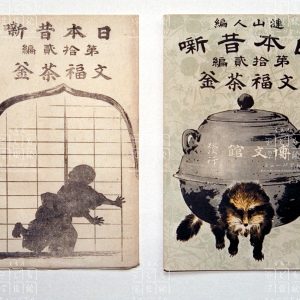 日本昔噺
第拾貳編
文福茶釜
漣山人編
日本昔噺
第拾貳編
文福茶釜
博文館